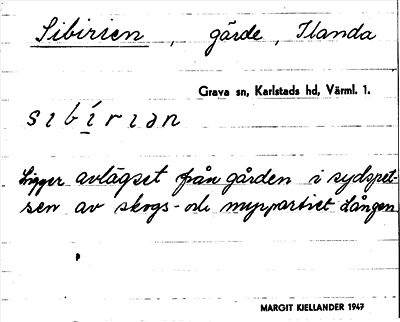 Sibirien, gärde, Ilanda
Grava sn, Karlstads hd, Värml. 1.
sɩbí̱rɩan
Ligger avlägset från gården i sydspet-
sen av skogs- och myrpartiet Lången
MARGIT KJELLANDER 1947